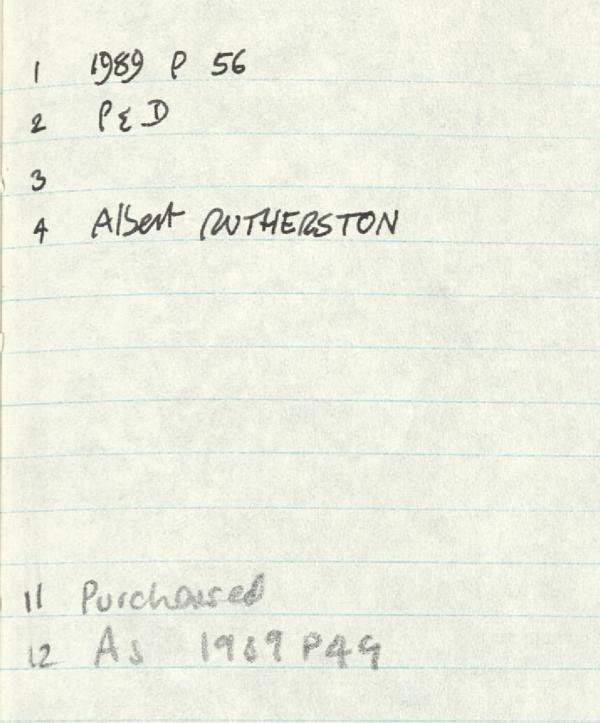 1 1989 P 56
2 P & D
3
4 Albert RUTHERSTON
11 Purchased
12 As 1989 P49